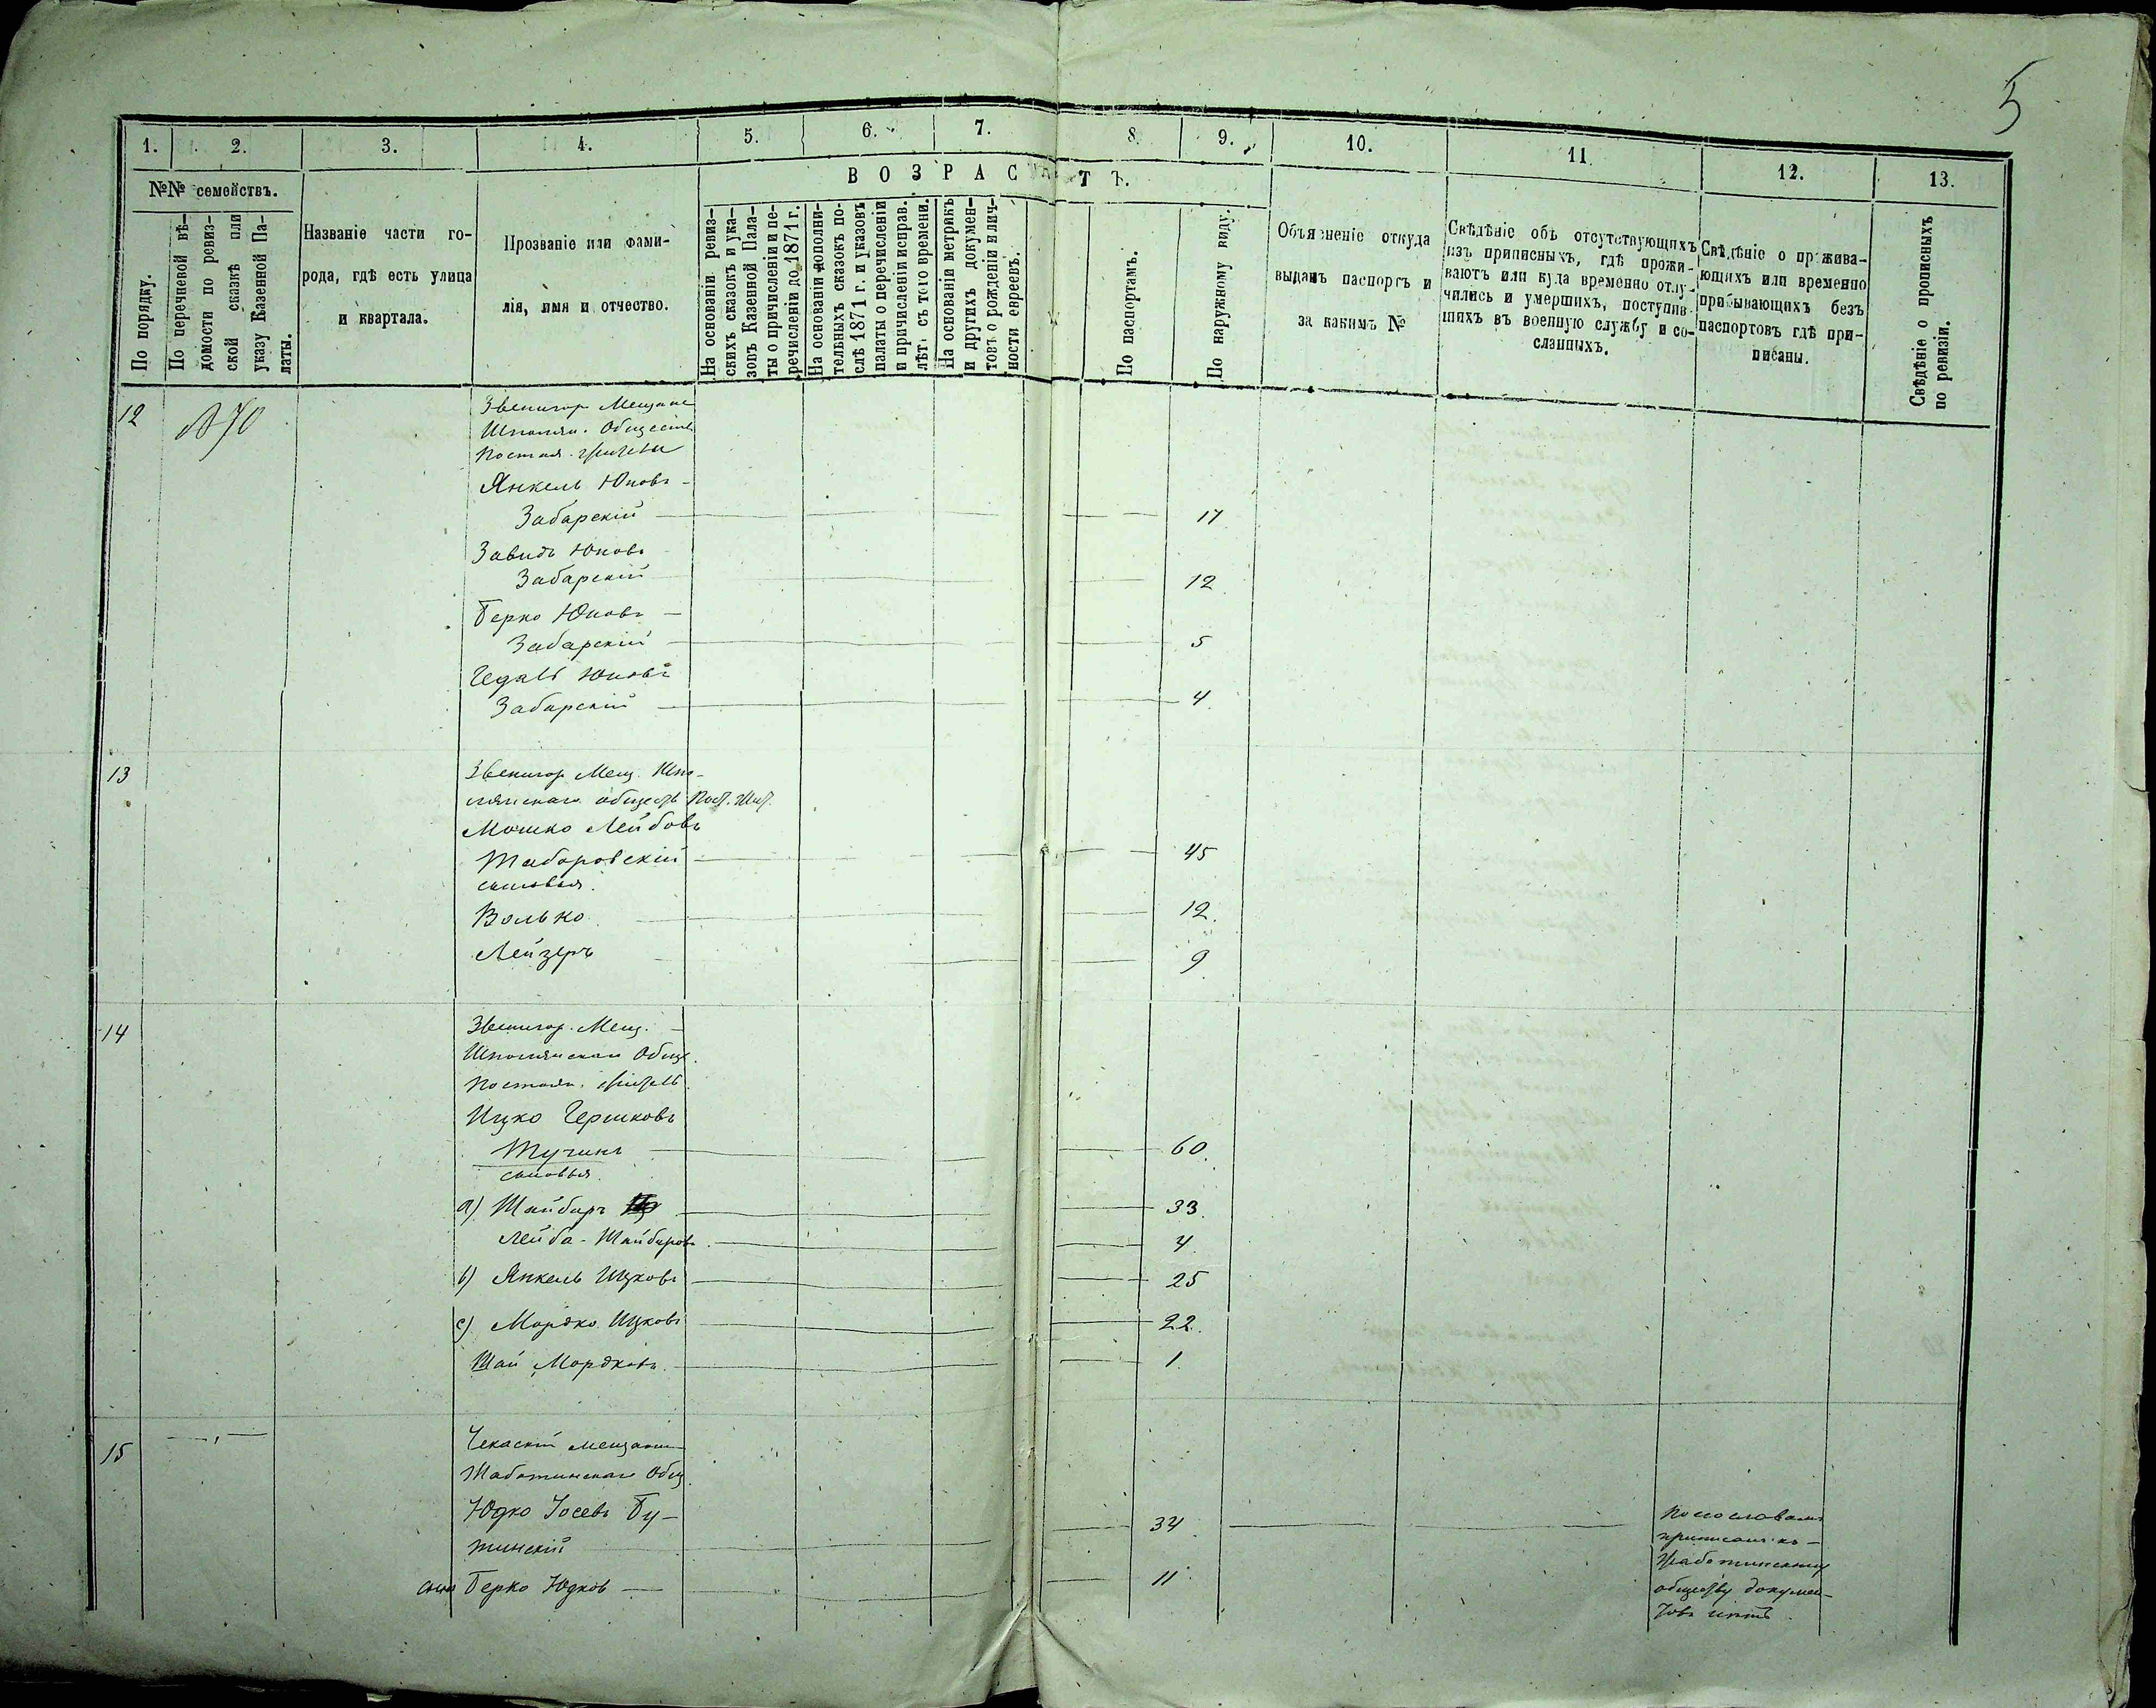 5
1. 2. 3. 4. 5. 6. 7. 8. 9. 10. 11. 12. 13.
№№ семействъ.
По порядку.
По перечневой вѣ-
домости по ревиз-
ской сказкѣ или
указу Казенной Па-
латы.
Названіе части го-
рода, гдѣ есть улица
и квартала.
Прозваніе или фами-
лія, имя и отчество.
ВОЗРАСТЪ.
На основаніи ревиз-
скихъ сказокъ и ука-
зовъ Казенной Пала-
ты о причисленіи и пе-
речисленіи до 1871 г.
На основаніи дополни-
тельныхъ сказокъ по-
слѣ 1871 г. и указовъ
палаты о перечисленіи
и причисленіи исправ.
лѣт. съ того времени.
На основаніи метрикъ
и другихъ докумен-
товъ о рожденіи и лич-
ности евреевъ.
По паспортамъ.
По наружному виду.
Объясненіе откуда
выданъ паспортъ и
за какимъ №
Свѣдѣніе объ отсутствующихъ
изъ приписныхъ, гдѣ прожи-
ваютъ или куда временно отлу-
чились и умершихъ, поступив-
шихъ въ военную службу и со-
сланныхъ.
Свѣдѣніе о прожива-
ющихъ или временно
пребывающихъ безъ
паспортовъ гдѣ при-
писаны.
Свѣдѣніе о прописныхъ
по ревизіи.
12
Звенигор Мещане
Шполян. Обществ
Постоя. жители
Янкель Юновъ
Забарскій 17
Завидъ Юновъ
Забарскій 12
Берко Юновъ
Забарскій 5
Гедаль Юновъ
Забарскій 4
13 Звенигор Мещ. Шпо-
лянскаго общест Пост. Жит.
Мошко Лейбовъ
Таборовскій 45
сыновья.
Волько 12.
Лейзеръ 9
14 Звенигор. Мещ.
Шполянскаго Общ.
Постоян. житель
Ицко Гершковъ
Тучинъ 60.
сыновья
а) Шайбаръ 33.
Лейба-Шайбаровъ 4
b) Янкель Ицковъ 25
с) Мордко Ицковъ 22.
Шай Мордковъ 1.
15 Чекаскій мещанин
Жаботинскаго Общ
Юдко Іосевъ Бу-
тинскій 34
сынъ Берко Юдков 11
По его словамъ
приписанъ къ
Жаботинскому
обществу докумен-
товъ нѣтъ